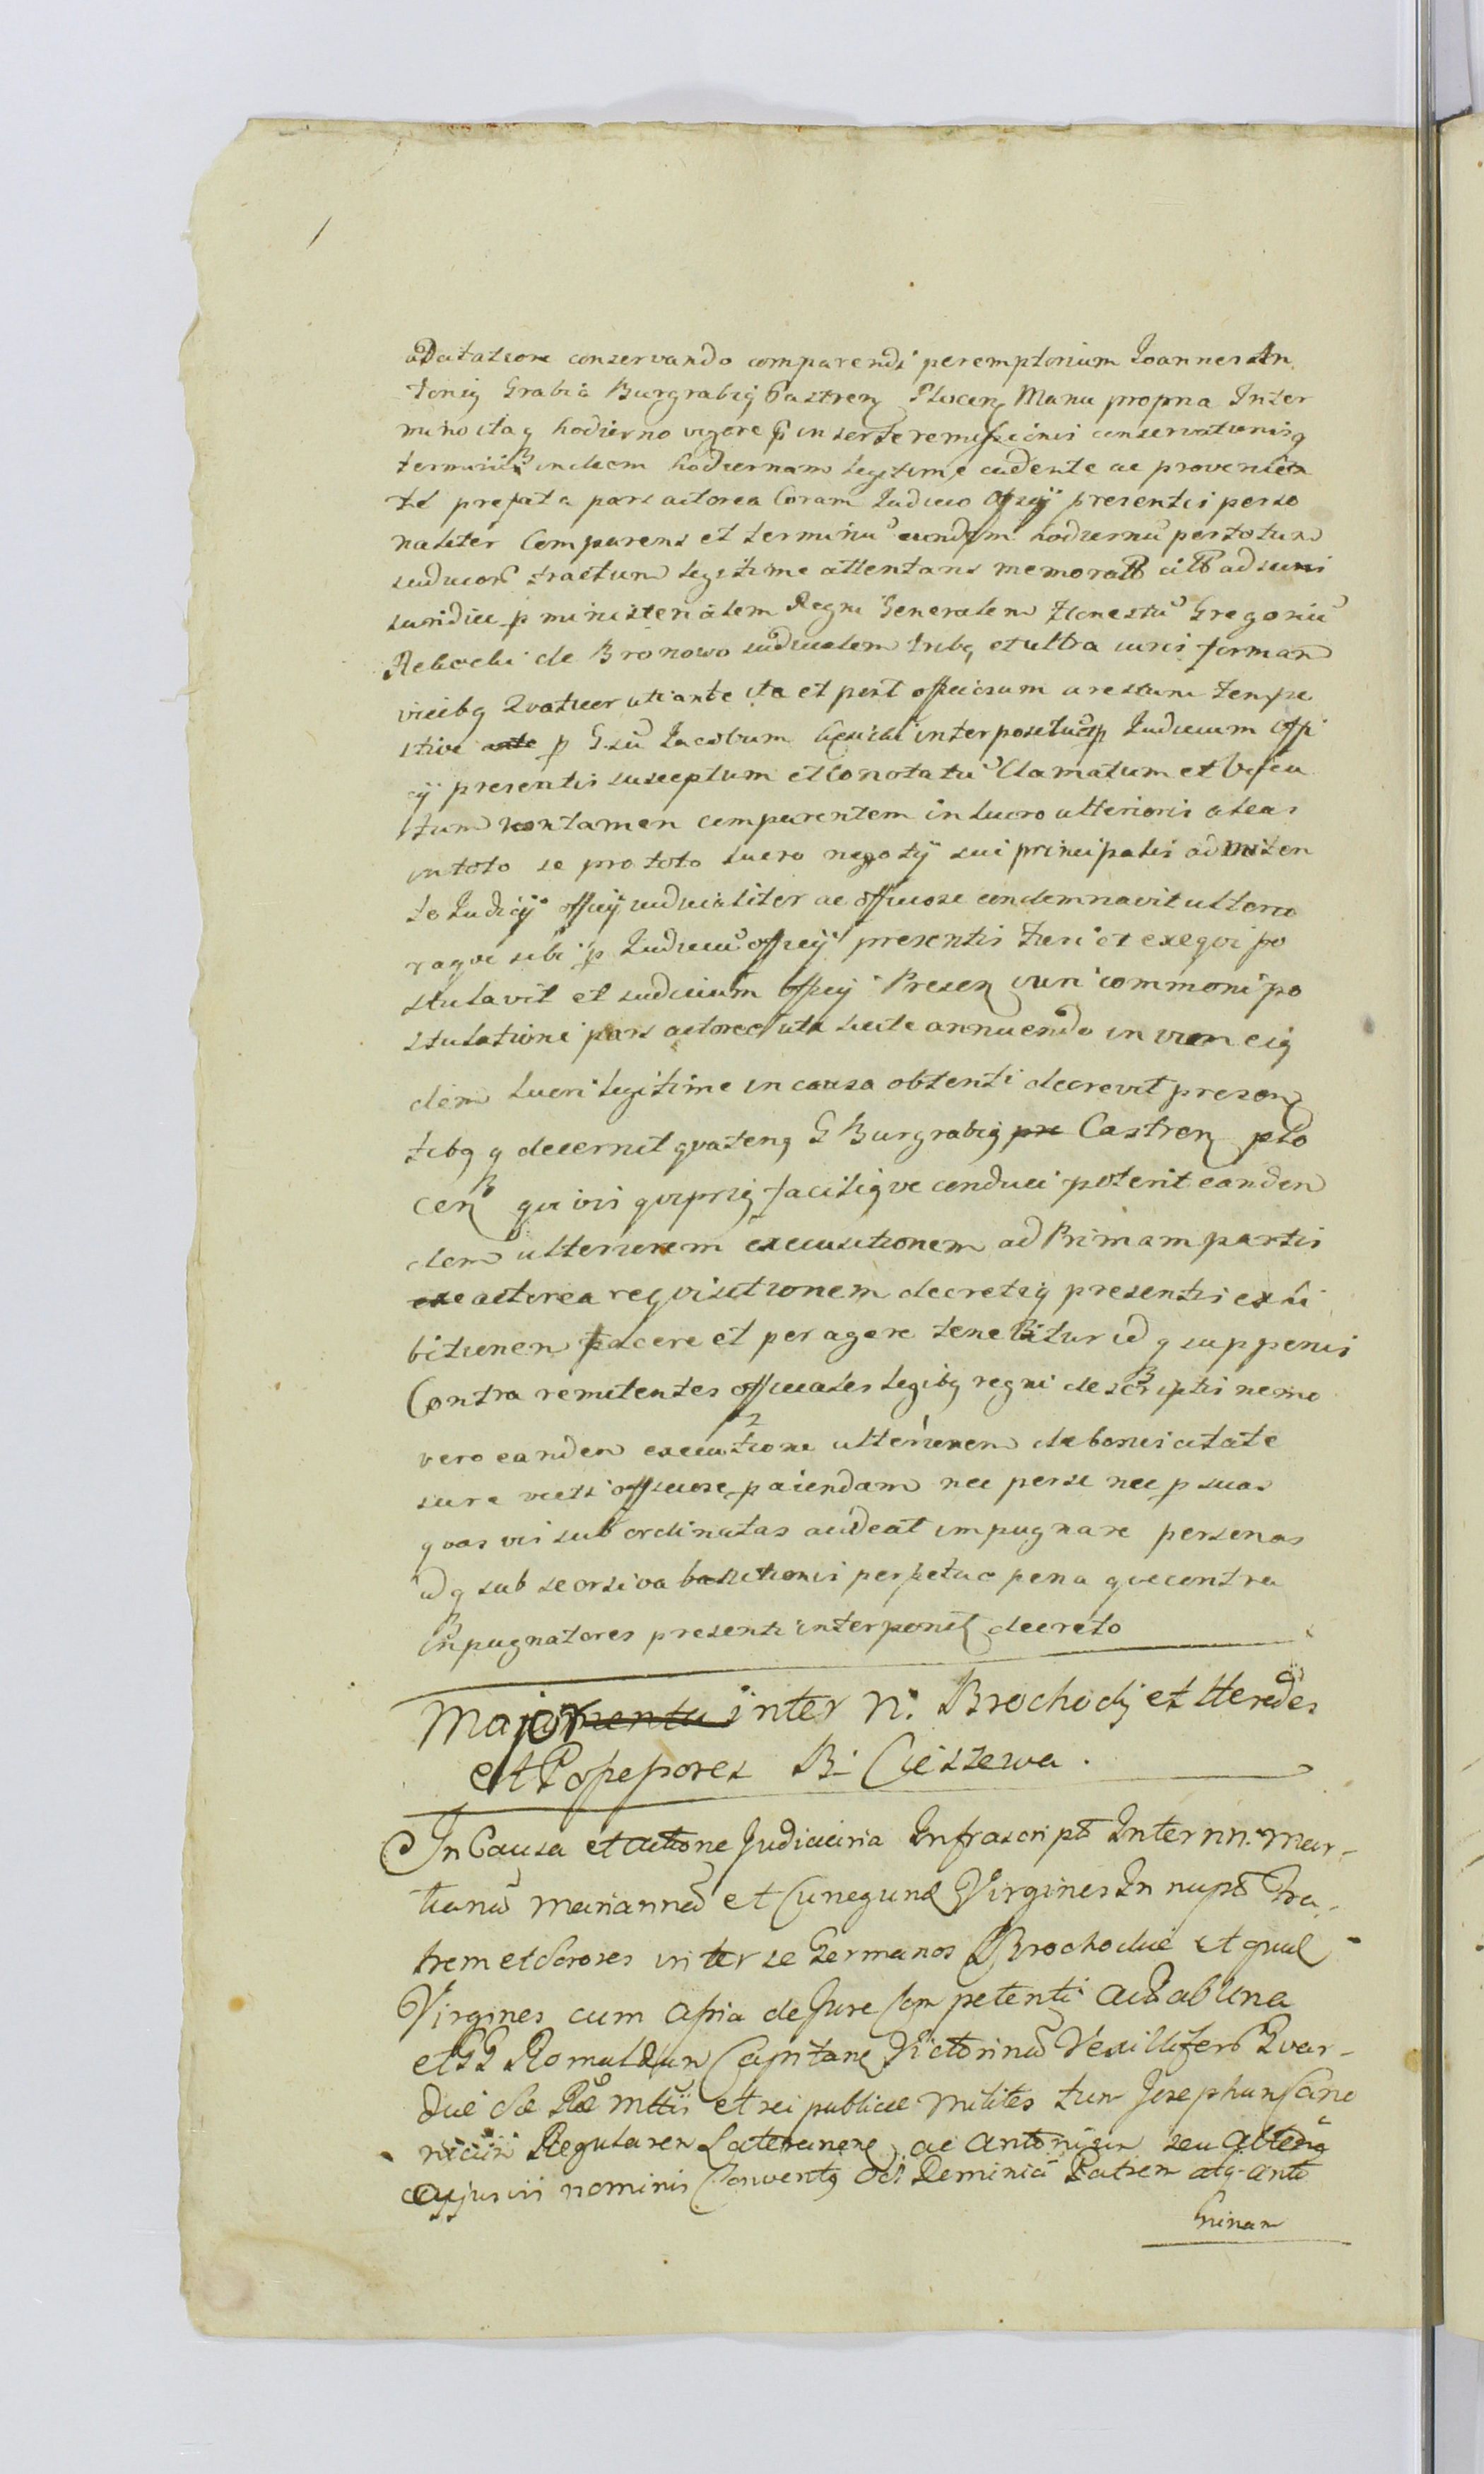 adatatione conservando comparendi peremptorium Ioannes An
toniq Grabia Burgrabiq Castrenq Plocenq Manu propria Inter
mino itaq hodierno vigore p inserte remissionis conservationisq
termini indiem hodiernam legitime cadente ac provenien
te prefata pars actorea Coram Iudicio Officij presentis perso
naliter Comparens et terminu eundem hodiernu per totum
iudicior tractum legitime attentans memoratt citt ad sui
iuridice p ministerialem Regni Generalem Honestu Gregoriu
de Bronowo iudicialem tribq et ultra iuris formam
vicibq Quatuor uti ante ita et post officiosum arestum tempe
stive p Gsu Iacobum interpositu p Iudicium Offi
cij presentis susceptum et Conotatu Clamatum et
tum non tamen comparentem in lucro ulterioris
in toto se pro toto lucro negotij sui principalis admitten
te Iudicij officij iudicialiter ac officiose condemnavit ulterio
raque sibi p Iudiciu officij presentis fieri et exeqvi po
stulavit et iudicium officij Presenq iuri commoni po
stulationi pars actorea uti licite annuendo in vim eiq
dem lucri legitime in causa obtenti decrevit presen
tibq q decernit qvatenq G Burgrabiq pre Castrenq plo
cenq qvivis qviprig faciliqve conduci poterit eanden
dem ulteriorem executionem ad Primam partis
exe actorea reqvisitionem decretiq presentis exhi
bitionem facere et peragere tenebitur id q sup penis
Contra remitentes officiales legibq regni descriptis nemo
vero eandem executione ulteriorem de bonis citate
iure victi officiose faciendam nec per se nec p suas
qvas vis subordinatas audeat impugnare personas
id q sub seorsiva banitionis perpetuc pena qve contra
impugnatores presenti interponit decreto
Major inter N. Brochocj et Heredes
et Possessores B. Cieszewa.
In Causa et actione Judiciaria Infrascript Inter nn. Mar-
tianu Mariannã et Cunegund Virgines In nupt Fra-
trem et Sorores inter se Germanos Brochockie et quid
Virgines cum assia de Jure Competenti act ab una
et GG Romuldum Capitanq Victorinu Vexillifero Gvar-
die S et rei publicae Milites tum Josephum Cano
nicum Regularem Lateranenq ac Antonium seu alteriq
cujusvis nominis Conventq Dominic Patrem atq. Anto
ninam